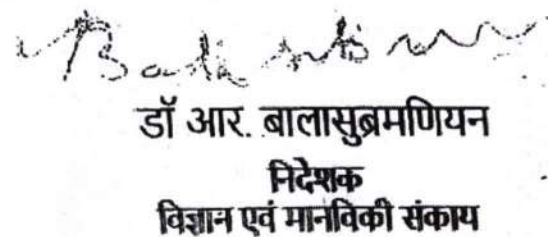 डॉ आर. बालासुब्रमणियन
निदेशक
विज्ञान एवं मानविकी संकाय